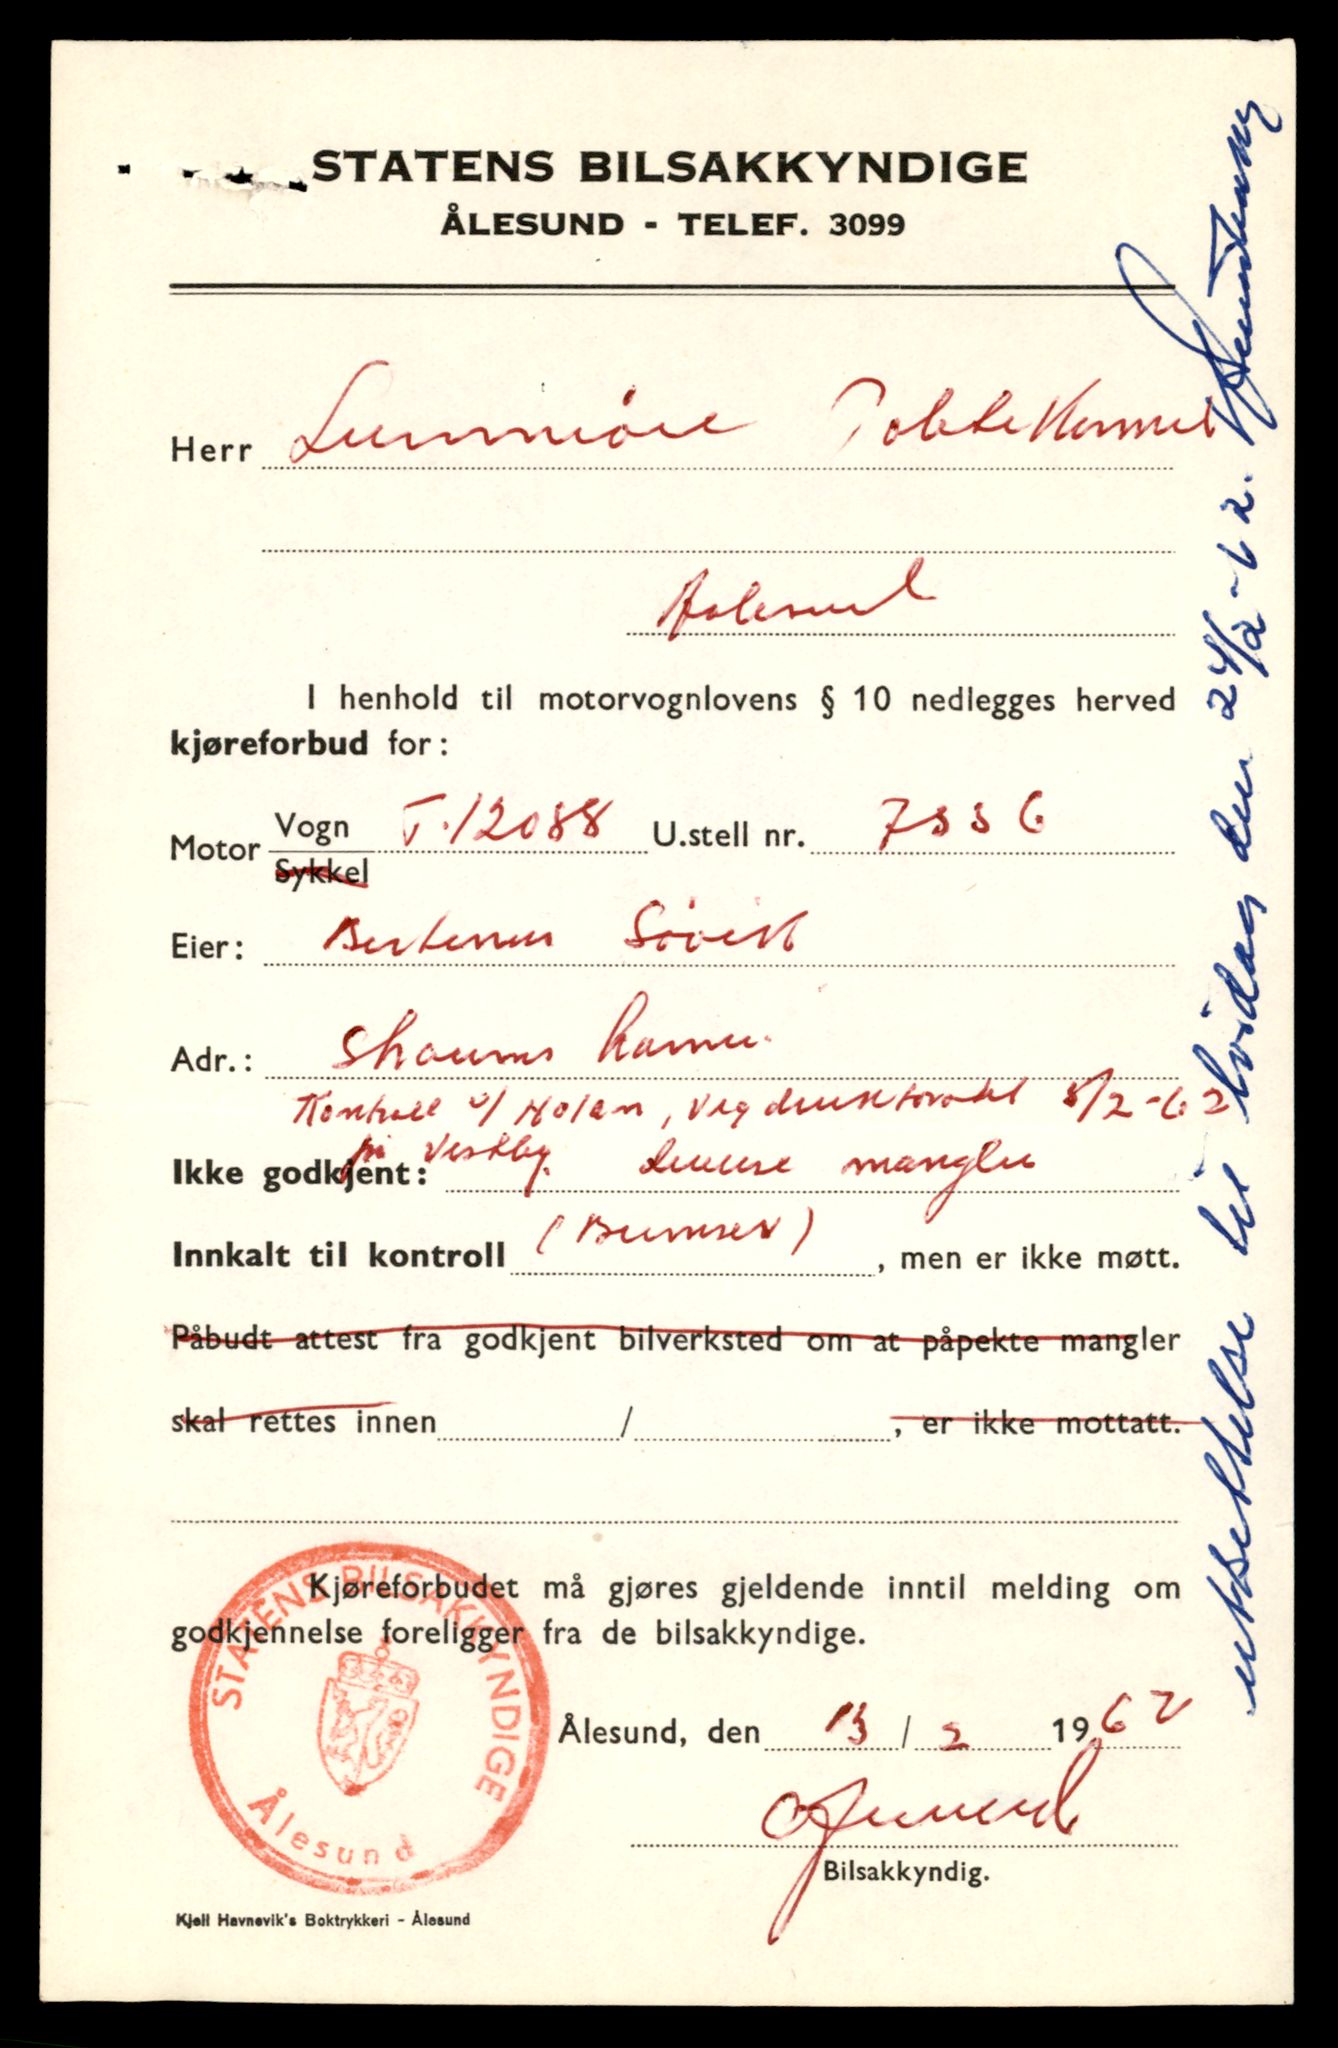 STATENS BILSAKKYNDIGE
ÅLESUND - TELEF. 3099
Herr Sunnmöre Politikammer
Aalesund
I henhold til motorvognlovens § 10 nedlegges herved
kjøreforbud for:
Motor Vogn T.12088 U.stell nr. 7336
Sykkel
Eier: Bertinus Sövik
Adr.: Skouns hamn.
Kontroll v/ Holen, Vegdirektoratet 8/2-62
på Vestby.
Ikke godkjent: diverse mangler
Innkalt til kontroll (Bremser), men er ikke møtt.
Påbudt attest fra godkjent bilverksted om at påpekte mangler
skal rettes innen / , er ikke mottatt.
Kjøreforbudet må gjøres gjeldende inntil melding om
godkjennelse foreligger fra de bilsakkyndige.
Ålesund, den 13/2 1962
Bilsakkyndig.
STATENS BILSAKKYNDIGE
Ålesund
Kjell Havnevik's Boktrykkeri - Ålesund
utbekktelse den 24/2-62.